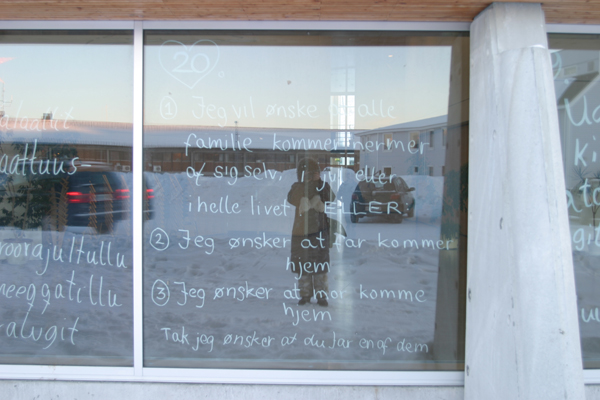 20.
① Jeg vil ønske for alle
familie kommer nærmer
af sig selv, i jul eller
i helle livet! ELLER.
② Jeg ønsker at far kommer
hjem
③ Jeg ønsker at mor komme
hjem
Tak jeg ønsker at du lar en af dem
aattuus
roorajultullu
neeqqatillu
ralugit